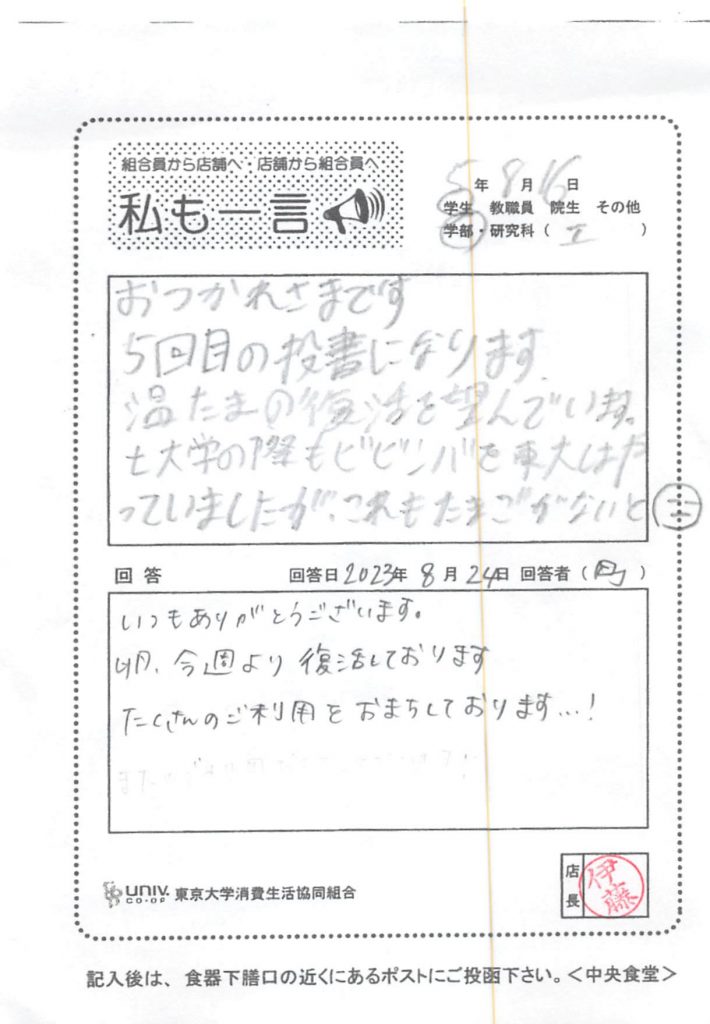 組合員から店舗へ・店舗から組合員へ
私も一言
5年 8月 16日
学生 教職員 院生 その他
学部・研究科(工)
おつかれさまです
5回目の投書になります.
温たまの復活を望んでいます。
七大学の際もビビンバを東大は
っていましたが、これもたまごがないと
回答 回答日2023年 8月24日 回答者( )
いつもありがとうございます。
卵、今週より復活しております
たくさんのご利用をおまちしております...!
UNIV. CO-OP 東京大学消費生活協同組合
店長 伊藤
記入後は、食器下膳口の近くにあるポストにご投函下さい。<中央食堂>